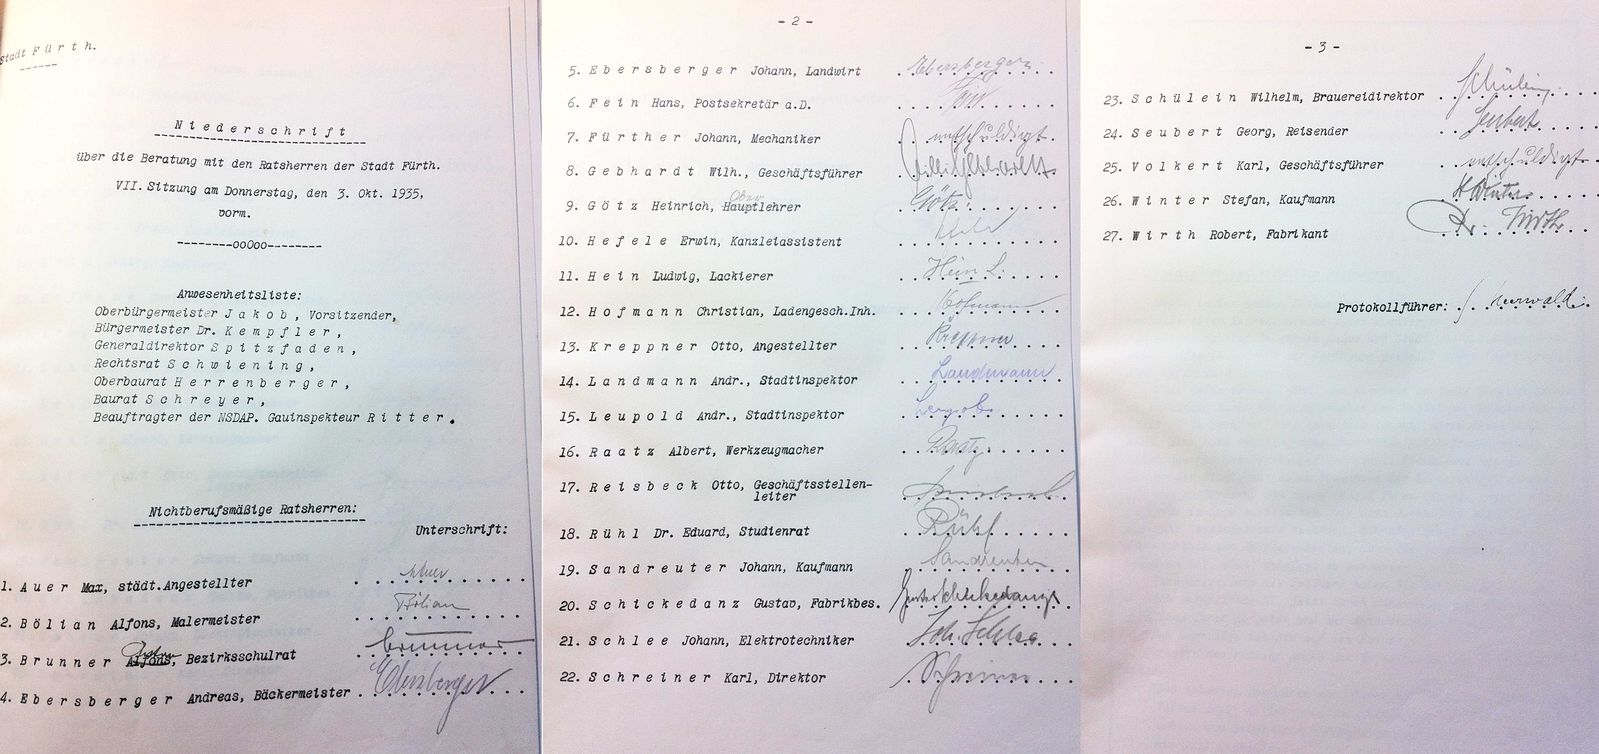 Stadt Fürth.
Niederschrift
über die Beratung mit den Ratsherren der Stadt Fürth.
VII. Sitzung am Donnerstag, den 3. Okt. 1935,
vorm.
--------ooOoo--------
Anwesenheitsliste:
Oberbürgermeister Jakob, Vorsitzender,
Bürgermeister Dr. Kempfler,
Generaldirektor Spitzfaden,
Rechtsrat Schwiening,
Oberbaurat Herrenberger,
Baurat Schreyer,
Beauftragter der NSDAP. Gauinspekteur Ritter.
Nichtberufsmäßige Ratsherren:
Unterschrift:
1. Auer Max, städt.Angestellter Auer
2. Bölian Alfons, Malermeister Bölian
3. Brunner Alfons, Bezirksschulrat Brunner
4. Ebersberger Andreas, Bäckermeister Ebersberger
- 2 -
5. Ebersberger Johann, Landwirt Ebersberger
6. Fein Hans, Postsekretär a.D. Fein
7. Fürther Johann, Mechaniker entschuldigt
8. Gebhardt Wilh., Geschäftsführer Willi Gebhardt
9. Götz Heinrich, Hauptlehrer Ober Götz
10. Hefele Erwin, Kanzleiassistent Hefele
11. Hein Ludwig, Lackierer Hein L.
12. Hofmann Christian, Ladengesch.Inh. Hofmann
13. Kreppner Otto, Angestellter Kreppner
14. Landmann Andr., Stadtinspektor Landmann
15. Leupold Andr., Stadtinspektor
16. Raatz Albert, Werkzeugmacher Raatz
17. Reisbeck Otto, Geschäftsstellen-
leiter Reisbeck
18. Rühl Dr. Eduard, Studienrat Rühl
19. Sandreuter Johann, Kaufmann Sandreuter
20. Schickedanz Gustav, Fabrikbes. Gustav Schickedanz
21. Schlee Johann, Elektrotechniker Joh. Schlee
22. Schreiner Karl, Direktor Schreiner
- 3 -
23. Schülein Wilhelm, Brauereidirektor Schülein
24. Seubert Georg, Reisender Seubert
25. Volkert Karl, Geschäftsführer entschuldigt
26. Winter Stefan, Kaufmann Winter
27. Wirth Robert, Fabrikant R. Wirth
Protokollführer: